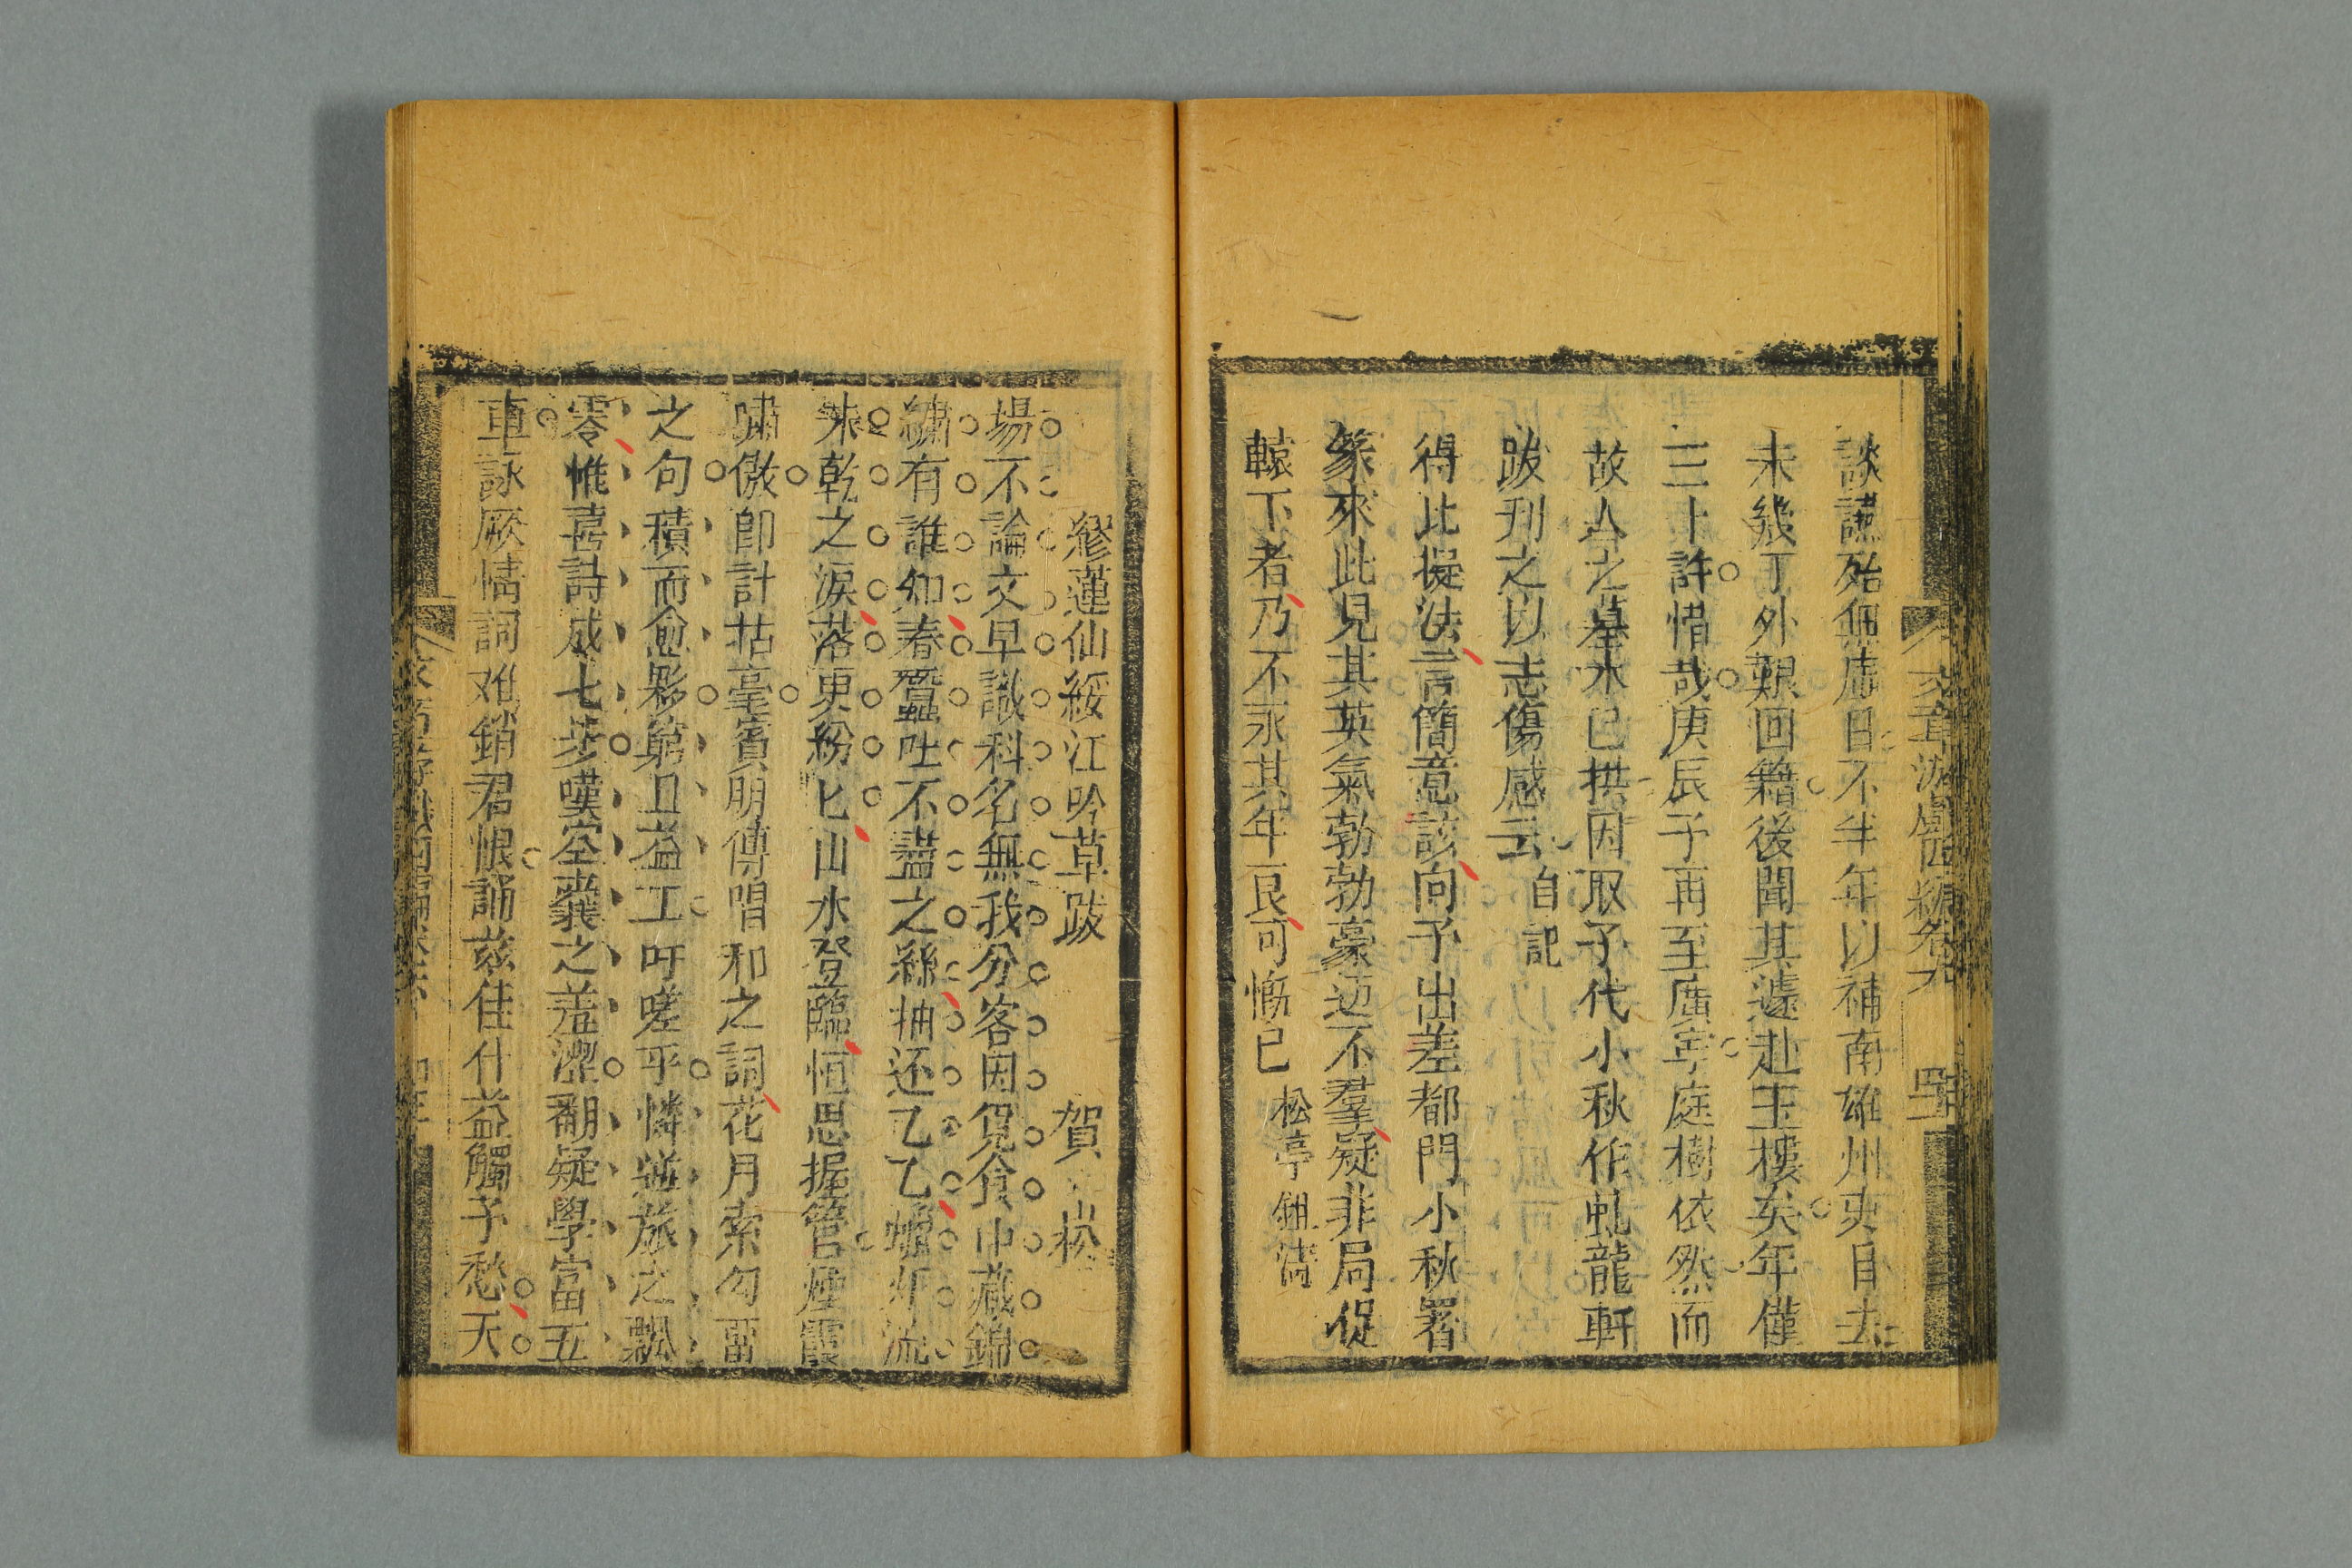 文章游戲四編卷六
談讌殆無虛日不半年以補南雄州吏目去
未幾丁外艱回籍後聞其遽赴玉樓矣年僅
三十許惜哉庚辰予再至廣寧庭樹依然而
故人之墓木已拱因取子代小秋作虬龍軒
跋刋之以志傷感云 自記
得此提法言簡意該向予出差都門小秋署
篆來此見其英氣勃勃豪邁不羣疑非局促
轅下者乃不永其年良可慨已 松亭鈕濤
繆蓮仙綏江吟草跋 賀崧
場不論文早識科名無我分客因覓食巾藏錦
繡有誰知春蠶吐不盡之絲抽还乙乙蠟炬流
未乾之淚落更紛匕山水登臨恒思握管煙霞
嘯傲卽計拈毫賓朋傳唱和之詞花月索勾畱
之句積而愈夥窮且益工吁嗟乎憐逆旅之飄
零惟喜詩成七步嘆空囊之羞澀翻疑學富五
車詠厥情詞难銷君恨誦兹佳什益觸予愁天